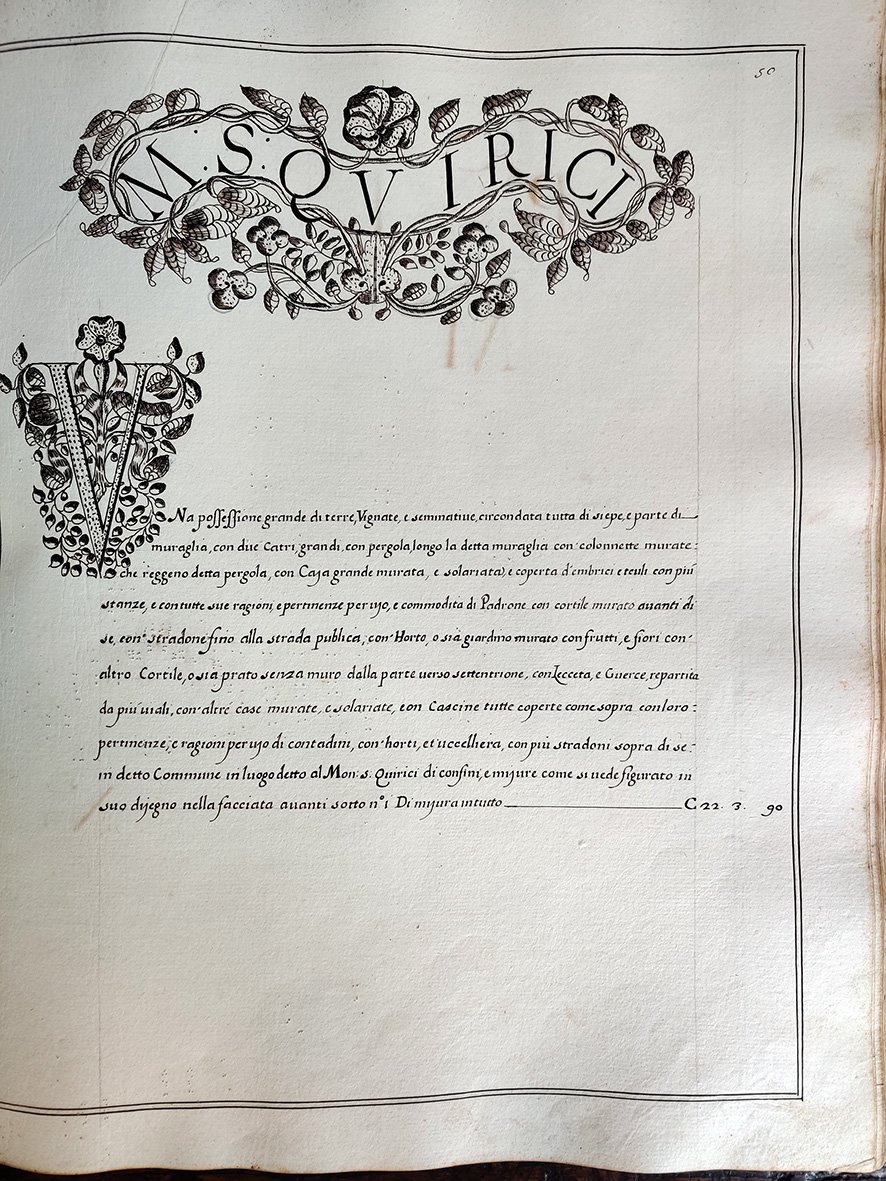 50
M. S. QVIRICI
VNa possessione grande di terre, Vignate, e seminatiue, circondata tutta di siepe, e parte di
muraglia, con due Catri, grandi, con pergola, longo la detta muraglia con' colonnette murate:
che reggeno detta pergola, con Casa grande murata, e solariata, e coperta d'embrici e teuli con più
stanze, e con tutte sue ragioni, e pertinenze per uso, e commodita di Padrone con cortile murato auanti di
se, con' stradone fino alla strada publica, con' Horto, o sia giardino murato con frutti, e fiori con'
altro Cortile, o sia prato senza muro dalla parte uerso settentrione, con Lecceta, e Guerce, repartita
da più uiali, con' altre case murate, e solariate, con Cascine tutte coperte come sopra con loro:
pertinenze, e ragioni per uso di contadini, con' horti, et uccelliera, con più stradoni sopra di se:
in detto Commune in luogo detto al Mon: s. Quirici di confini, e misure come si uede figurato in
suo disegno nella facciata auanti sotto n° 1 Di misura in tutto C 22. 3. 90